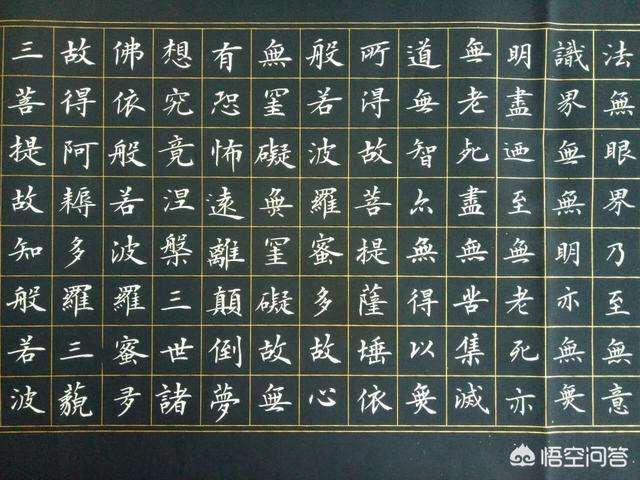 法無眼界乃至無意
識界無無明亦無無
明盡迺至無老死亦
無老死盡無苦集滅
道無智亦無得以無
所得故菩提薩埵依
般若波羅蜜多故心
無罣礙無罣礙故無
有恐怖遠離顛倒夢
想究竟涅槃三世諸
佛依般若波羅蜜多
故得阿耨多羅三藐
三菩提故知般若波
悟空问答